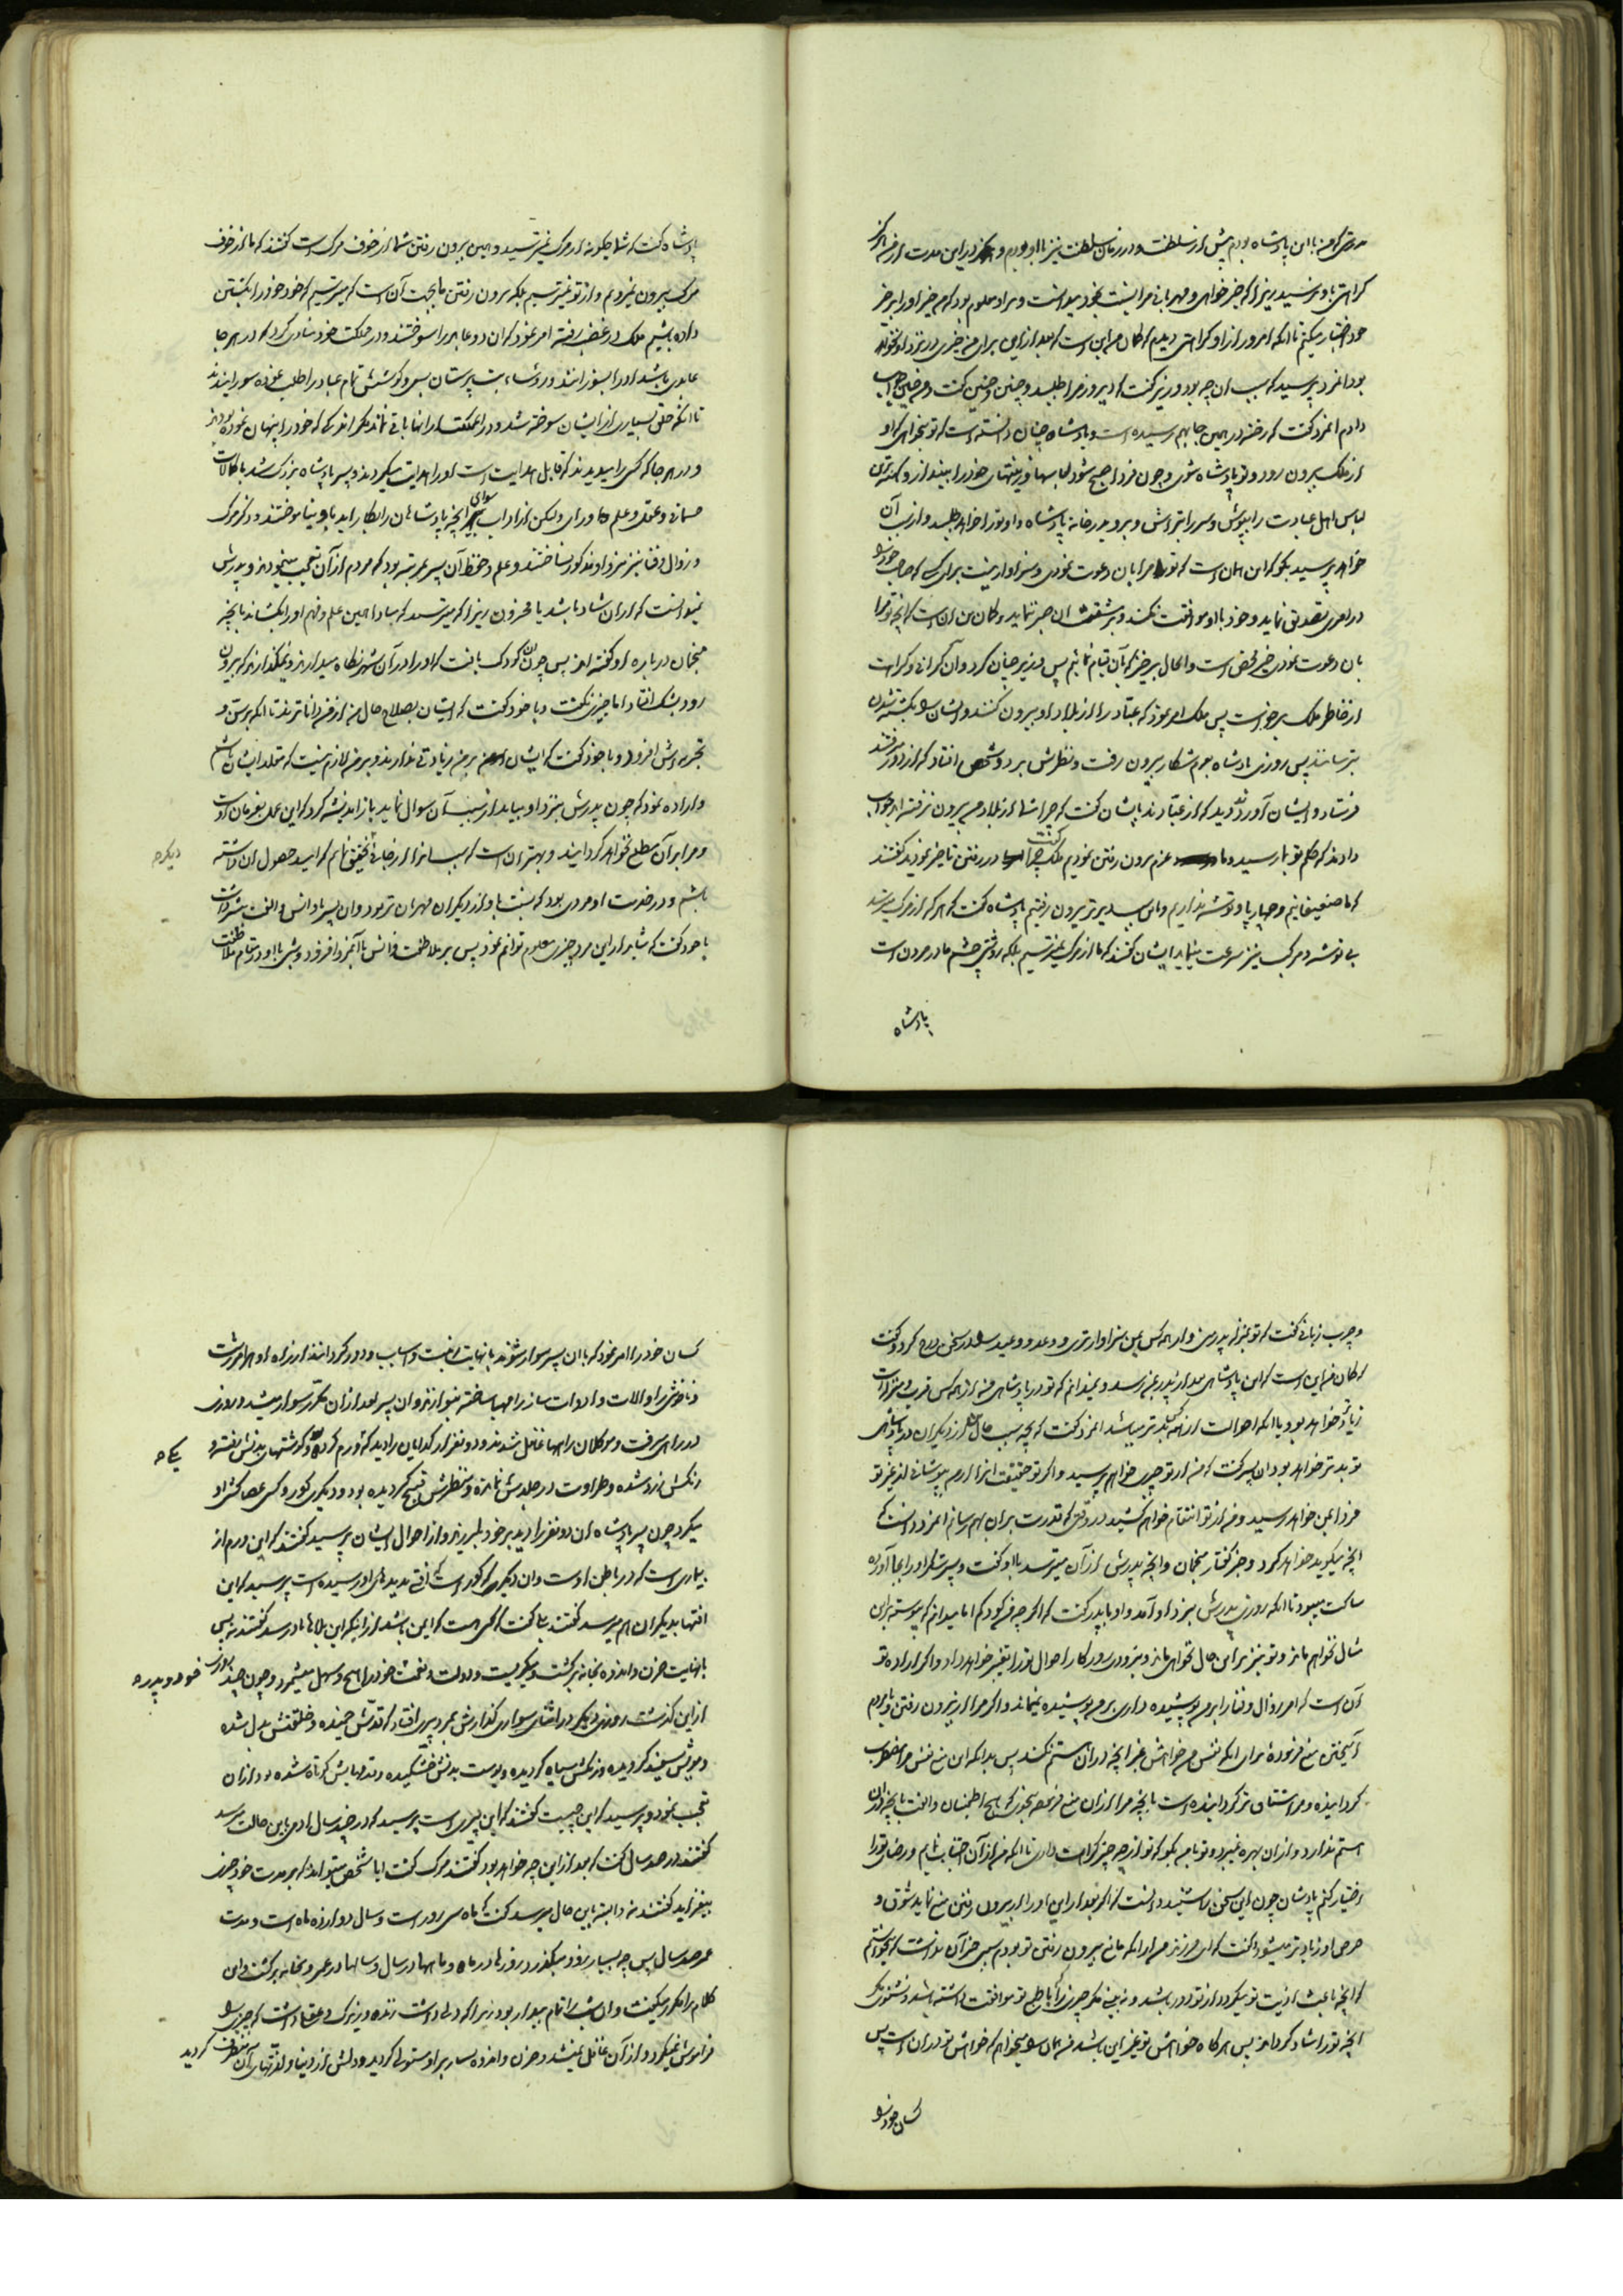 مدتی که من با این پادشاه بودم پیش از سلطنت و در زمان سلطنت نیز با او بودم و هرگز در این مدت از من اثر
کراهتی باو نرسید زیرا که خیرخواهی و مهربانی مرا نسبت بخود میدانست و بر او معلوم بود که من خیر او را بر خیر
خود اختیار میکنم تا آنکه امروز از او کراهتی دیدم که گمان من این است که بعد از این برای من خیری در نزد او نخواهد
بود آنمرد پرسید که سبب آن چه بود وزیر گفت که دیروز مرا طلبید و چنین و چنین گفت و من چنین جواب
دادم آنمرد گفت که رخنه در همین جا بهم رسیده است و پادشاه چنان دانسته است که تو میخواهی که او
از ملک بیرون رود و تو پادشاه شوی و چون فردا صبح شود لباسها و زینتهای خود را بینداز و کهنه‌ترین
لباس اهل عبادت را بپوش و سر را بتراش و برو بدر خانه پادشاه و او تو را خواهد طلبید و از سبب آن
خواهد پرسید بگو که این همان است که تو مرا بآن دعوت نمودی و سزاوار نیست برای کسی که صاحب خود را
در امری تصدیق نماید و خود با او موافقت نکند و بر مشقت آن صبر ننماید و گمان من آن است که آنچه تو مرا
بآن دعوت نمودی خیر محض است و الحال برخیز که بآن قیام نمائیم پس وزیر چنان کرد و آن گرانی و کراهت
از خاطر ملک برخواست پس ملک امر نمود که عبّاد را از بلاد او بیرون کنند و ایشان را بکشته شدن
بترسانند پس روزی پادشاه بعزم شکار بیرون رفت و نظرش بر دو شخص افتاد که از دور میرفتند
فرستاد و ایشان را آوردند دید که از عبّادند بایشان گفت که چرا شما از بلاد من بیرون نرفته‌اید جواب
دادند که حکم تو بما رسید و ما عزم بیرون رفتن نمودیم ملک گفت چرا در رفتن تأخیر نمودید گفتند
که ما ضعیفانیم و چهارپا و توشه نداریم و باین سبب دیرتر بیرون رفتیم پادشاه گفت که هر که از مرگ میترسد
بی توشه و مرکب نیز سرعت مینماید ایشان گفتند که ما از مرگ نمیترسیم بلکه روشنی چشم ما در مردن است
پادشاه
پادشاه گفت که شما چگونه از مرگ نمیترسید و همین بیرون رفتن شما از خوف مرگ است گفتند که ما از خوف
مرگ بیرون نمیرویم و از تو نمیترسیم بلکه بیرون رفتن ما بجهت آن است که میترسیم که خود خود را بکشتن
داده باشیم ملک در غضب رفته امر نمود که آن دو عابد را سوختند و در مملکت خود منادی کرد که در هر جا
عابدی باشد او را بسوزانند و رؤساء بت پرستان سعی و کوشش تمام عباد را طلب نموده سوزانیدند
تا آنکه خلق بسیاری از ایشان سوخته شد و در آن مملکت از آنها باقی نماند مگر اندکی که خود را پنهان نموده بودند
و در هر جا که کسی را میدیدند که قابل هدایت است او را هدایت میکردند و پسر پادشاه بزرگ شد با کمالات
جسمانی و عقل و علم و رای و لیکن از آداب سوای آنچه پادشاهان را بکار آید باو نیاموختند و ذکر مرگ
و زوال و فنا نیز نزد او مذکور نساختند و علم و حفظ آن پسر بمرتبه بود که مردم از آن تعجب مینمودند و پدرش
نمیدانست که از آن شاد باشد یا محزون زیرا که میترسید که مبادا همین علم و فهم او را بکشاند بآنچه
منجمان درباره او گفته‌اند پس چون آن کودک یافت که او را در آن شهر نگاه میدارند و نمیگذارند که بیرون
رود بشک افتاد اما چیزی نگفت و با خود گفت که ایشان بصلاح حال من از من داناترند تا آنکه چون سن و
تجربه‌اش افزود و با خود گفت که ایشان بر من زیادتی ندارند و بر من لازم نیست که مقلد ایشان باشم
و اراده نمود که چون پدرش بنزد او بیاید از سبب آن سوال نماید باز اندیشه کرد که این عمل بفرمان اوست
و مرا بر آن مطلع نخواهد گردانید و بهتر آن است که سبب آنرا از جائی تحقیق نمایم که امید حصول آن داشته
دیگر ص
باشم و در خدمت او مردی بود که نسبت باو از دیگران مهربان‌تر بود و آن پسر با او انس و الفت بیشتر داشت
با خود گفت که شاید از این مرد چیزی معلوم توانم نمود پس بر ملاطفت و انس با آنمرد افزود و شبی با او در مقام ملاطفت
و چرب زبانی گفت که تو بمنزله پدر منی و از همه کس بمن سزاوارتری و وعد و وعید را در سخن درج کرد و گفت
که گمان من این است که این پادشاهی بعد از پدر بمن رسد و نمیدانم که تو در پادشاهی من از همه کس قرب و منزلت
زیاده خواهد بود یا آنکه احوالت از همه کس بدتر میباشد آنمرد گفت که بچه سبب حال من از دیگران در پادشاهی
تو بدتر خواهد بود آن پسر گفت که من از تو چیزی خواهم پرسید و اگر تو حقیقت آنرا از من بپوشانی از غیر تو
فردا بمن خواهد رسید و من از تو انتقام خواهم کشید در وقتی که قدرت بر آن بهم رسانم آنمرد دانست که
آنچه میگوید خواهد کرد و خبر گفتار منجمان و آنچه پدرش از آن میترسد با او گفت و پسر شکر او را بجا آورده
ساکت میبود تا آنکه روزی پدرش بنزد او آمد و او با پدر گفت که اگر چه من کودکم اما میدانم که پیوسته بر این
مثال نخواهم ماند و تو نیز بر این حال نخواهی ماند و بزودی روزگار احوال تو را تغییر خواهد داد و اگر اراده تو
آن است که امر زوال و فنا را بر من پوشیده داری بر من پوشیده نمیماند و اگر مرا از بیرون رفتن و با مردم
آمیختن منع فرموده برای آنکه نفس من خواهش غیر آنچه در آن هستم نکند پس بدان که این منع نفس مرا مضطرب
گردانیده و مرا مشتاق‌تر گردانیده است بآنچه مرا از آن منع فرموده بنحوی که هیچ اطمینان و الفت بآنچه در آن
هستم ندارد و از آن بهره نمیبرد و تو با من بگو که تو از چه چیز کراهت داری تا آنکه من از آن اجتناب نمایم و رضای تو را
اختیار کنم پادشاه چون این سخن را شنید دانست که اگر بعد از این او را از بیرون رفتن منع نماید شوق و
حرص او زیادتر میشود گفت که ای فرزند من از آنکه مانع بیرون رفتن تو بودم سببی جز آن نداشت که میخواستم
که آنچه باعث اذیت تو میگردد از تو دور باشد و نبینی مگر چیزی را که با طبع تو موافقت داشته باشد و نشنوی مگر
آنچه تو را شاد گرداند پس هر گاه خواهش تو غیر این باشد من همان را میخواهم که خواهش تو در آن است پس
کسان خود را
کسان خود را امر نمود که با آن پسر سوار شوند با نهایت زینت و اسباب و دور گردانند از راه او هر امر زشت
و ناخوشی را و آلات و ادوات ساز را مهیا ساخته بنوازند و آن پسر بعد از آن مکرّر سوار میشد و روزی
در راهی میرفت و موکلان راهها غافل شدند و دو نفر از گدایان را دید که ورم کرده و گوشتهای بدنش نفته و
یکی ص
رنگش زرد شده و طراوت در جلدش نمانده و منظرش قبیح گردیده بود و دیگری کور و کسی عصاکشی او
میکرد چون پسر پادشاه آن دو نفر را دید بر خود بلرزید و از احوال ایشان پرسید گفتند که این ورم از
بیماری است که در باطن اوست و آن دیگری که کور است آفتی به دیده‌های او رسیده است پرسید که این
آفتها بدیگران هم میرسد گفتند بلی گفت که کسی هست که ایمن باشد از اینکه این بلاها باو رسد گفتند نه پس
با نهایت حزن و اندوه بخانه برگشت و میگریست و دولت و نعمت خود و پدر ص را هیچ و سهل میشمرد و چون چند روز
از این گذشت روزی دیگر در اثنای سواری گذارش بمرد پیری افتاد که قدّش خمیده و خلقتش بدل شده
و مویش سفید گردیده و رنگش سیاه گردیده و پوست بدنش خشکیده و قدمهایش کوتاه شده بود از آن
تعجب نمود و پرسید که این چیست گفتند که این پیری است پرسید که در چند سال آدمی باین حالت میرسد
گفتند در صد سال گفت که بعد از این چه خواهد بود گفتند مرگ گفت آیا شخص میتواند که بر مدت خود چیزی
بیفزاید گفتند نه و البته باین حال میرسد گفت که ماه سی روز است و سال دوازده ماه است و مدت
عمر صد سال پس چه بسیار زود میگذرد روزها در ماه و ماهها در سال و سالها در عمر و بخانه برگشت و این
کلام را مکرر میگفت و آن شب را تمام بیدار بود زیرا که دلی داشت زنده و زیرک و عقلی داشت که چیزی را
فراموش نمیکرد و از آن غافل نمیشد و حزن و اندوه بسیار بر او مستولی گردید و دلش از دنیا و لذّتهای آن متنفّر گردید